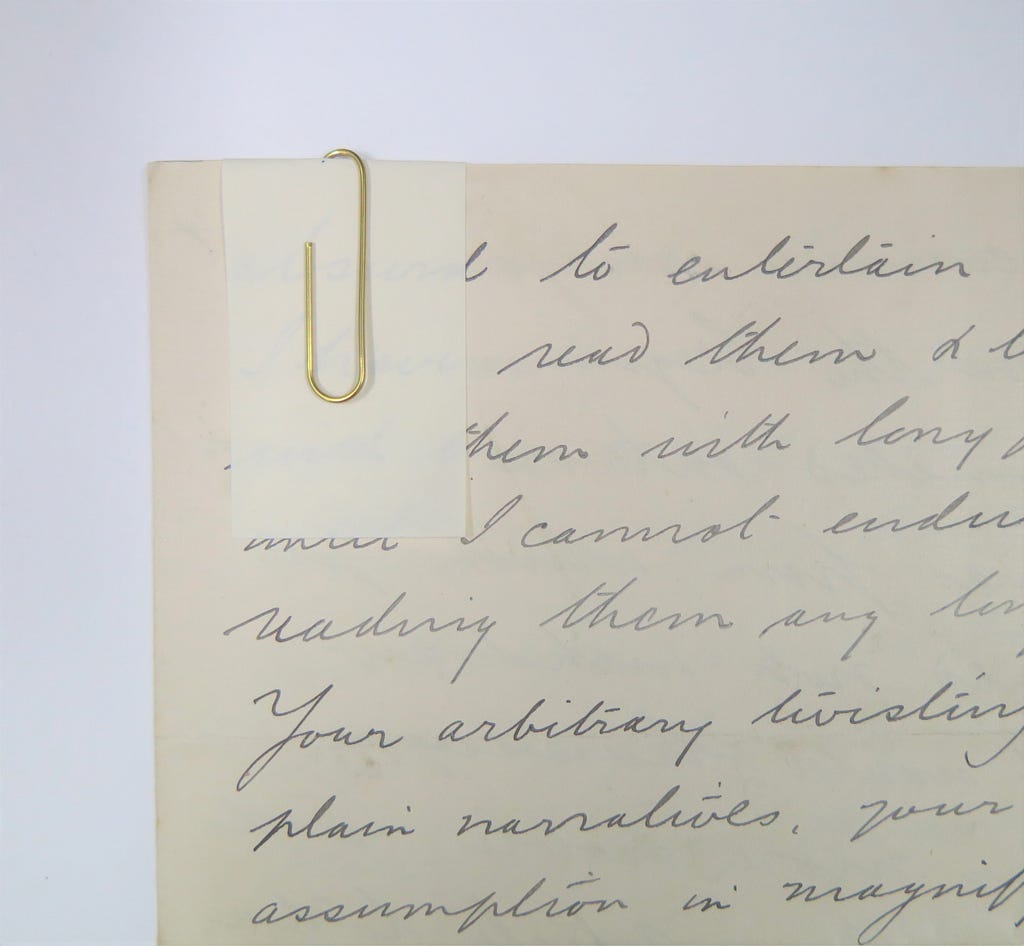 to entertain
read them &
them with long
I cannot
reading them any
Your arbitrary twisting
plain narratives, your
assumption in